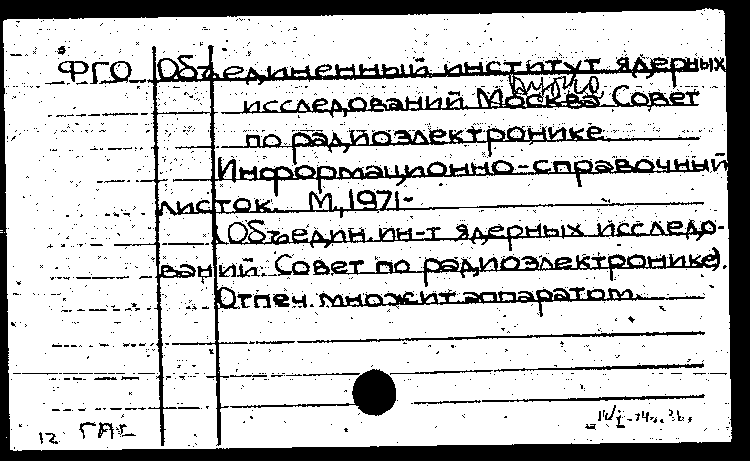 ФГО Объединенный институт ядерных
исследований Москва Совет
по радиоэлектронике
Информационно-справочный
листок. М., 1971-
(Объедин. ин-т ядерных исследо-
ваний. Совет по радиоэлектронике).
Отпеч. множит. аппаратом.
12